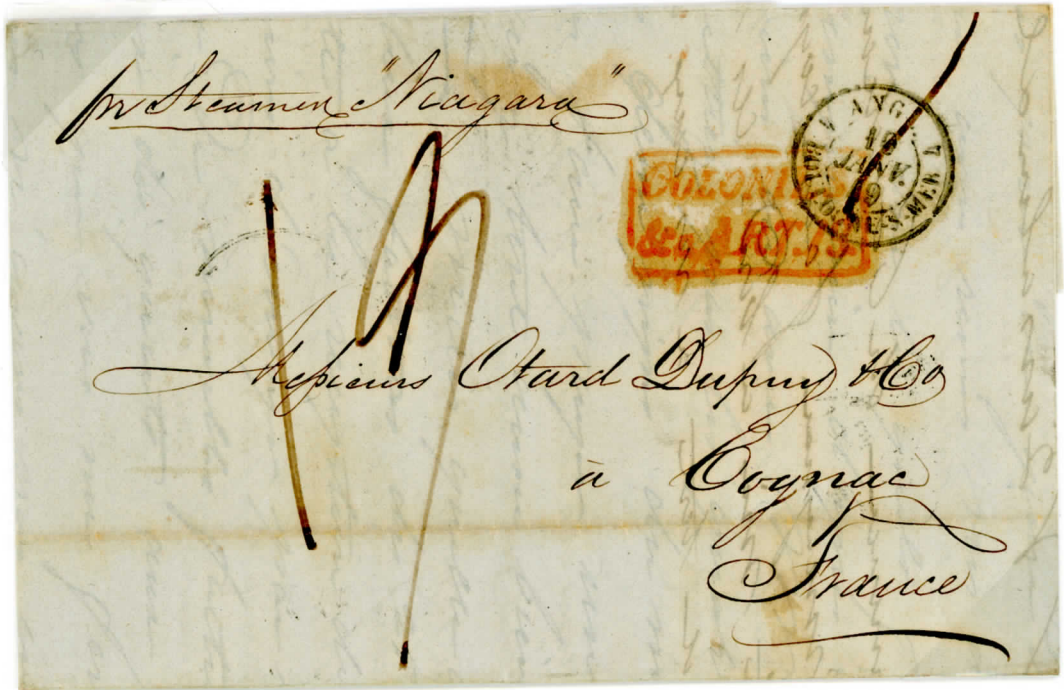 pr Steamer "Niagara"
COLONIES
& ART. 13.
ANGL.
JANV.
BOULOGNE-S-MER
Messieurs Otard Dupuy & Co
à Cognac
France